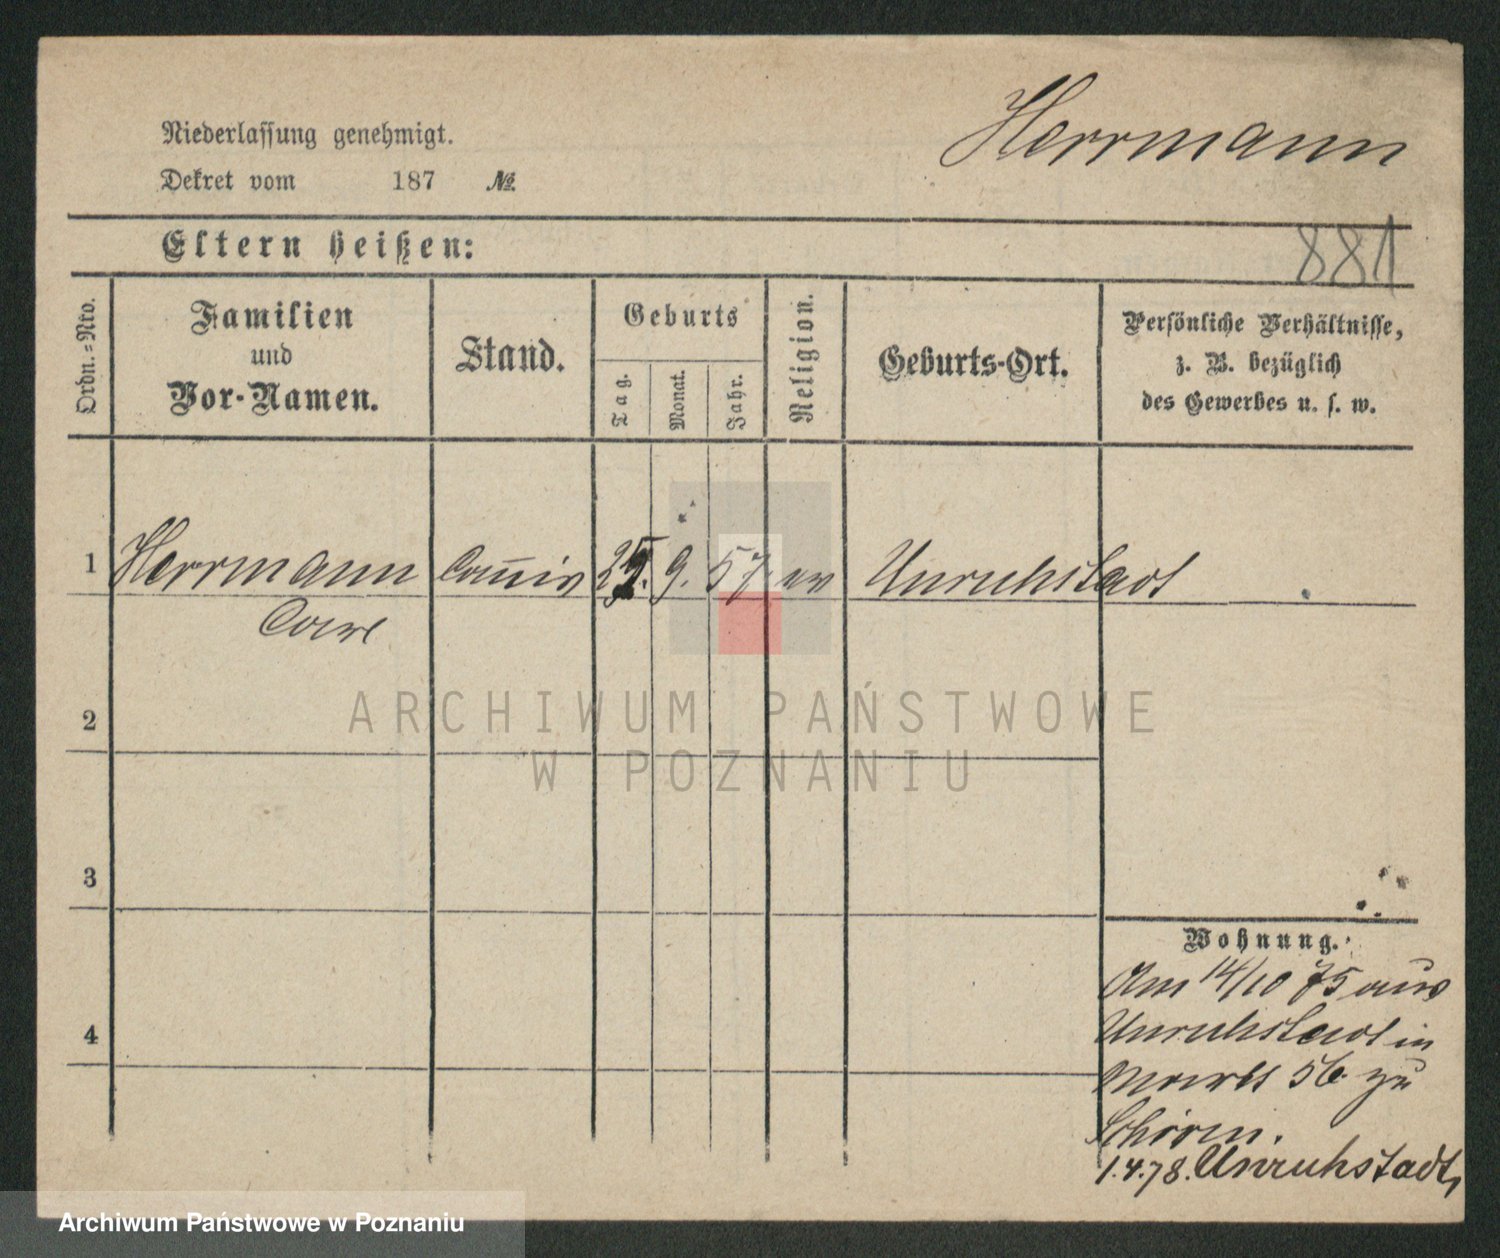 Herrmann
Niederlassung genehmigt.
Dekret vom 187 №
Eltern heißen:
881
Ordn.=Nro.
Familien
und
Vor-Namen.
Stand.
Geburts
Tag.
Monat.
Jahr.
Religion.
Geburts-Ort.
Persönliche Verhältnisse,
z. B. bezüglich
des Gewerbes u. s. w.
1 Herrmann Commis 25. 9. 57 ev Unruhstadt
Carl
2
3
4
Wohnung.
Am 14/10 75 aus
Unruhstadt in
Markt 56 zu
1.4.78. Unruhstadt,
ARCHIWUM PAŃSTWOWE
W POZNANIU
Archiwum Państwowe w Poznaniu